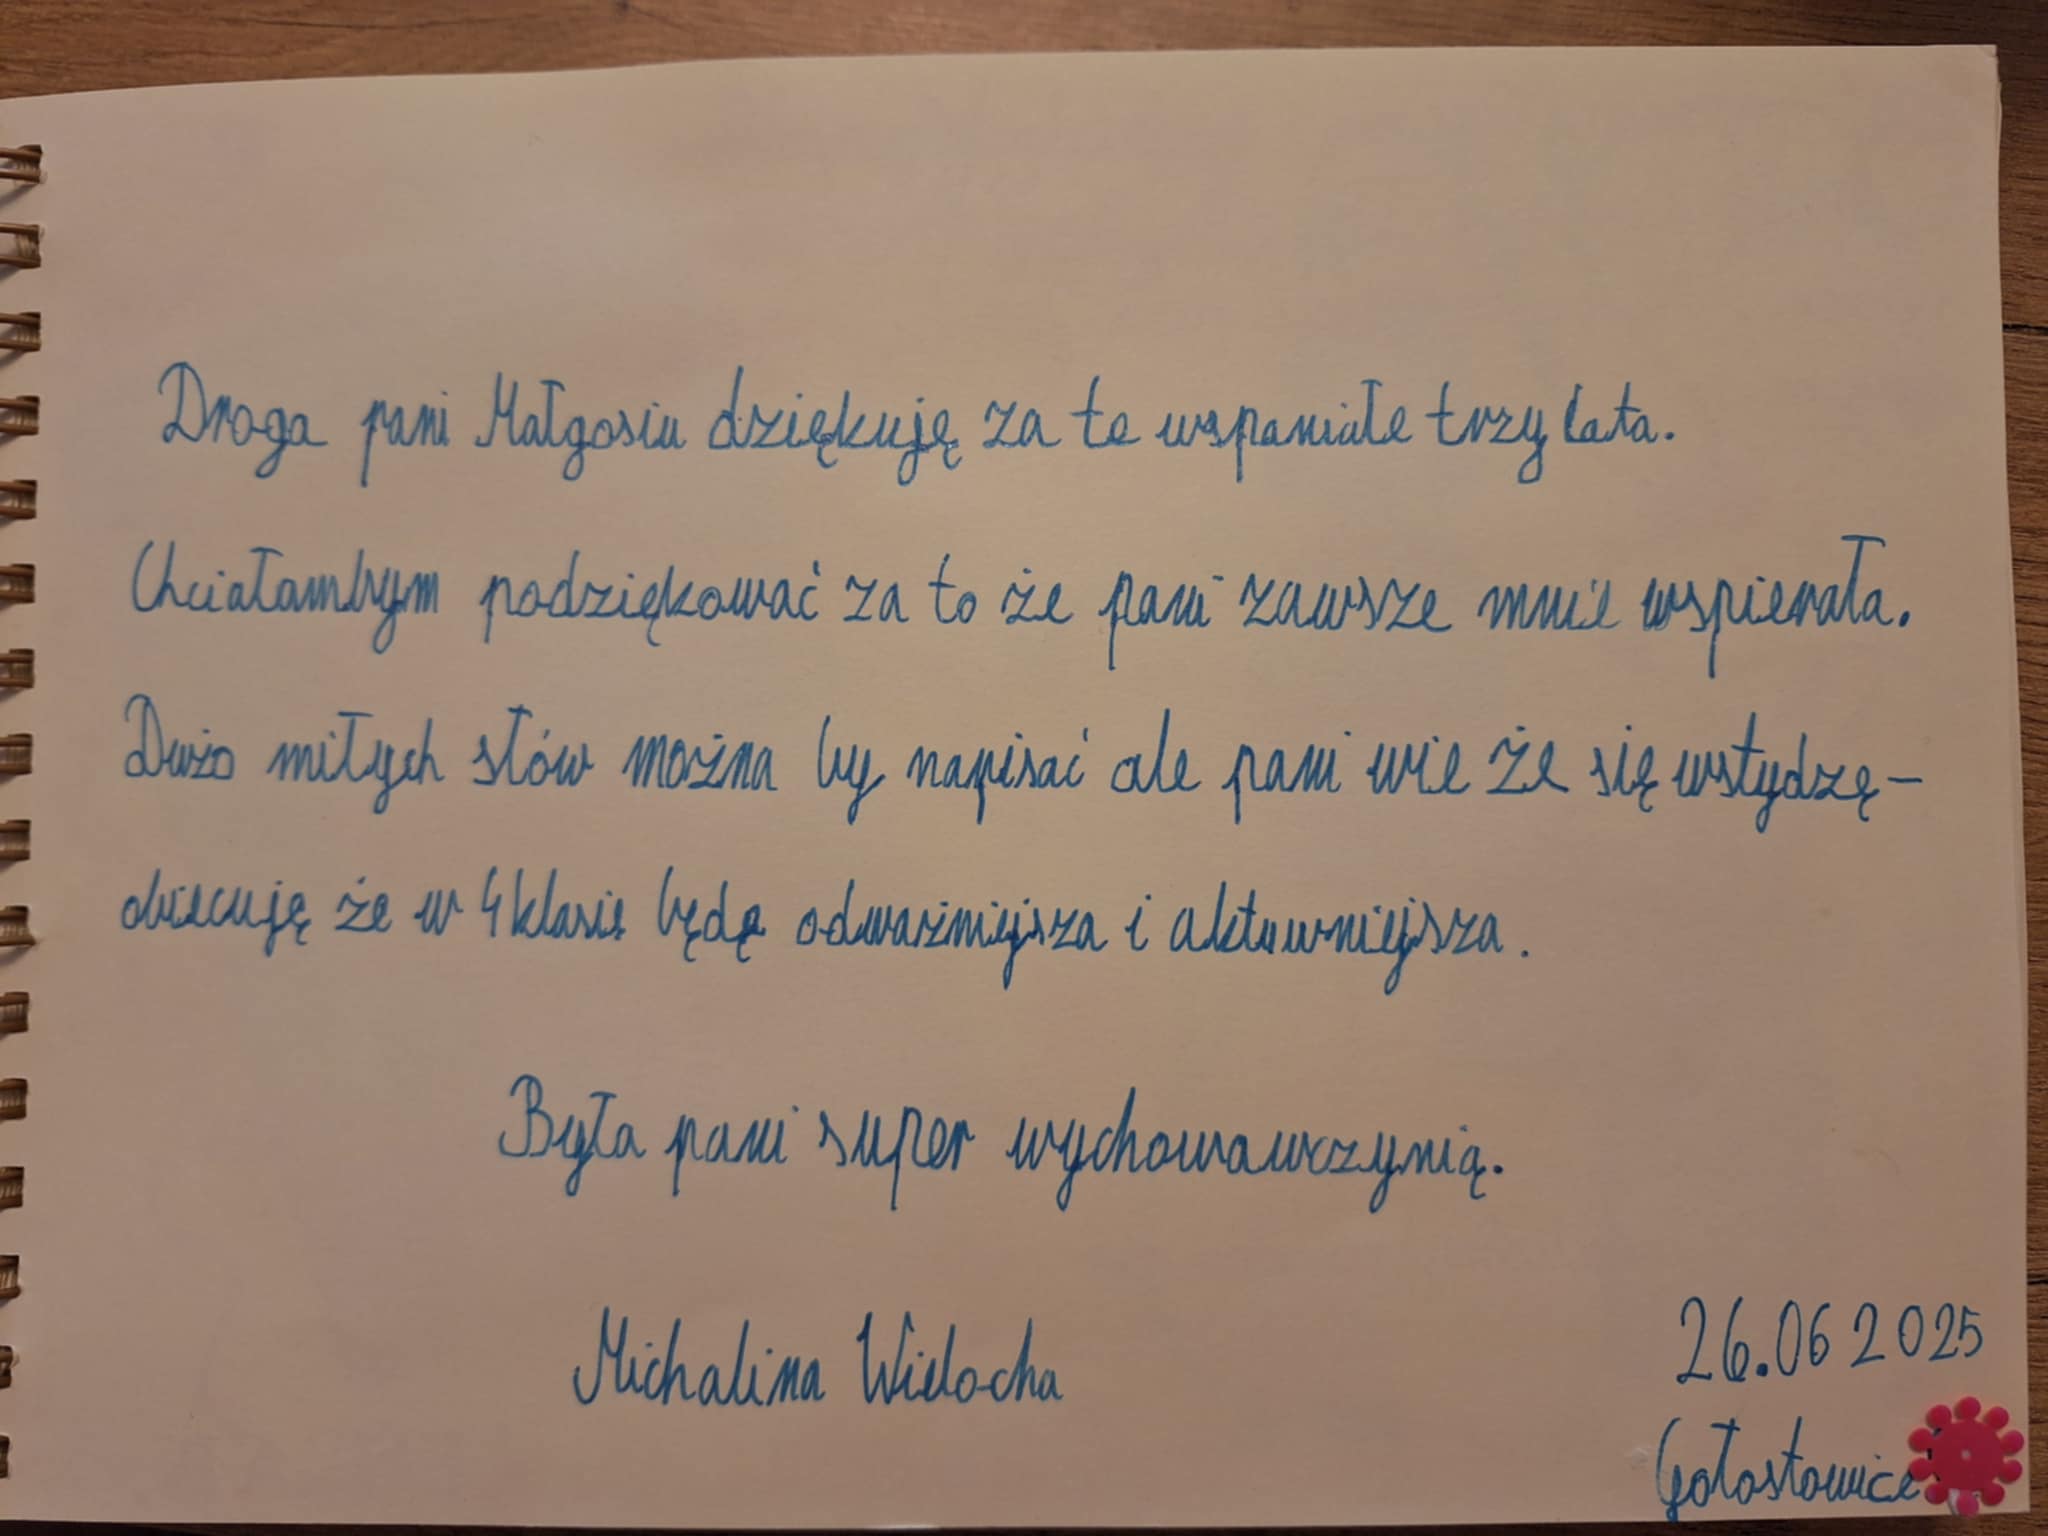 Droga pani Małgosiu dziękuję za te wspaniałe trzy lata.
Chciałambym podziękować za to że pani zawsze mnie wspierała.
Dużo miłych słów można by napisać ale pani wie że się wstydzę-
obiecuję że w 4 klasie będę odważniejsza i aktuwniejsza.
Była pani super wychowawczynią.
Michalina Wielocha
26.06 2025
Gołostowice